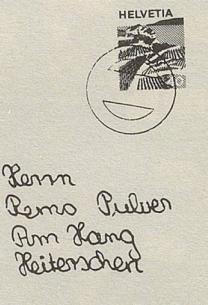 HELVETIA
Herrn
Remo Pulver
Am Hang
Heiterschen